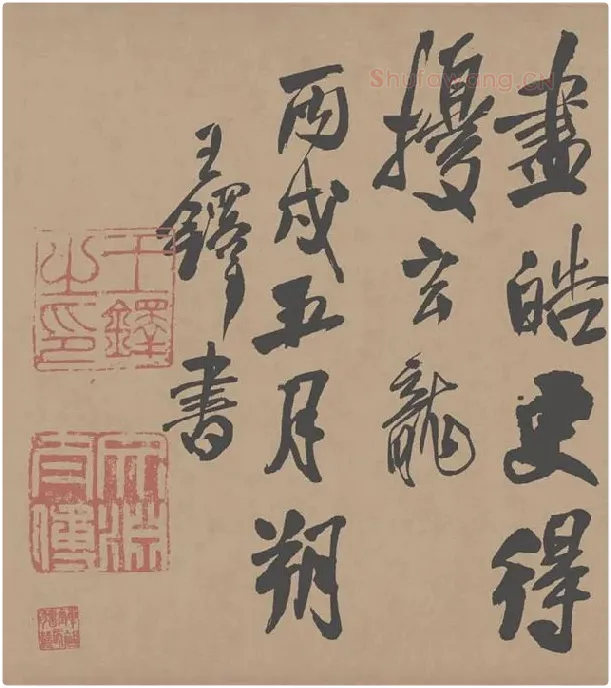 Shufawang.CN
盡皓更得
擾玄龍
丙戌五月朔
王鐸書
王鐸之印